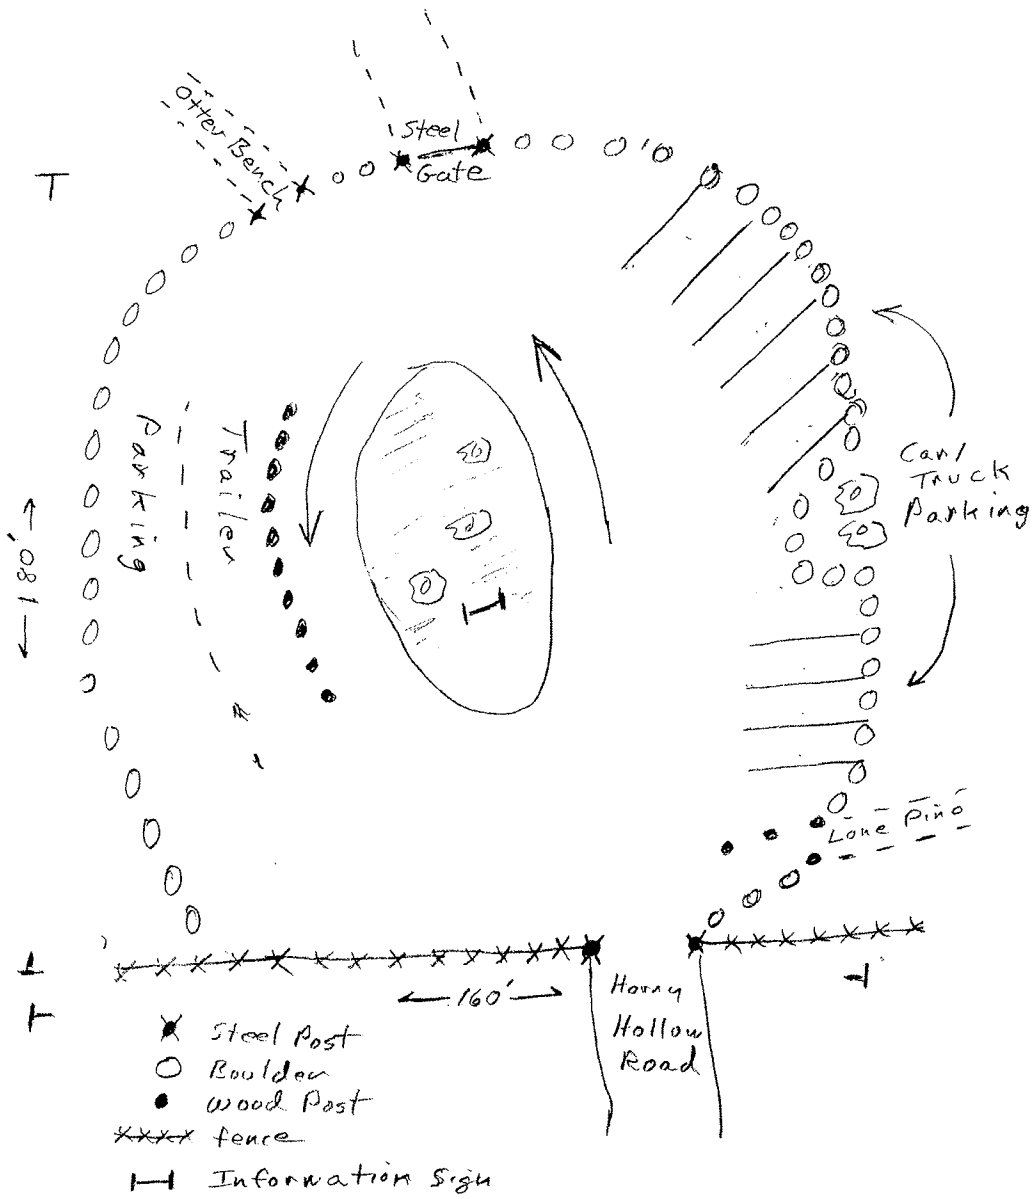 Otter Bench
Steel
Gate
Trailer
Parking
180'
Car/
Truck
Parking
Lone Pine
160'
Horny
Hollow
Road
Steel Post
Boulder
Wood Post
fence
Information Sign